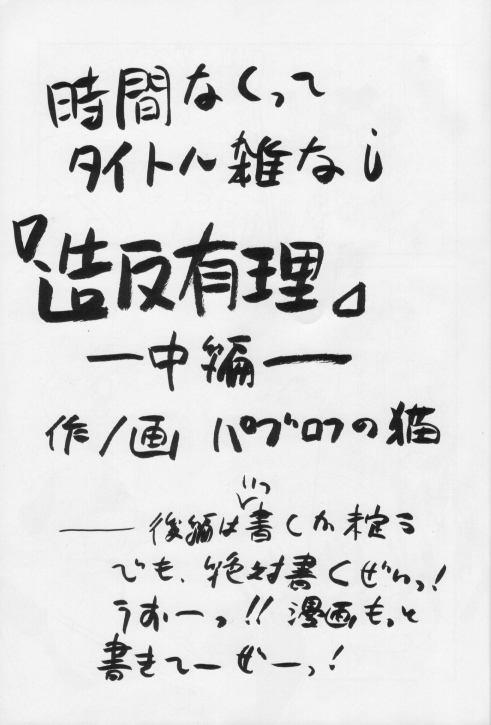 時間なくって
タイトル雑なし
『造反有理』
ー中編ー
作/画 パブロフの猫
いつ
――後編は書くか未定う
でも、絶対書くぜいっ!
うおーっ!!漫画もっと
書きてーぜーっ!